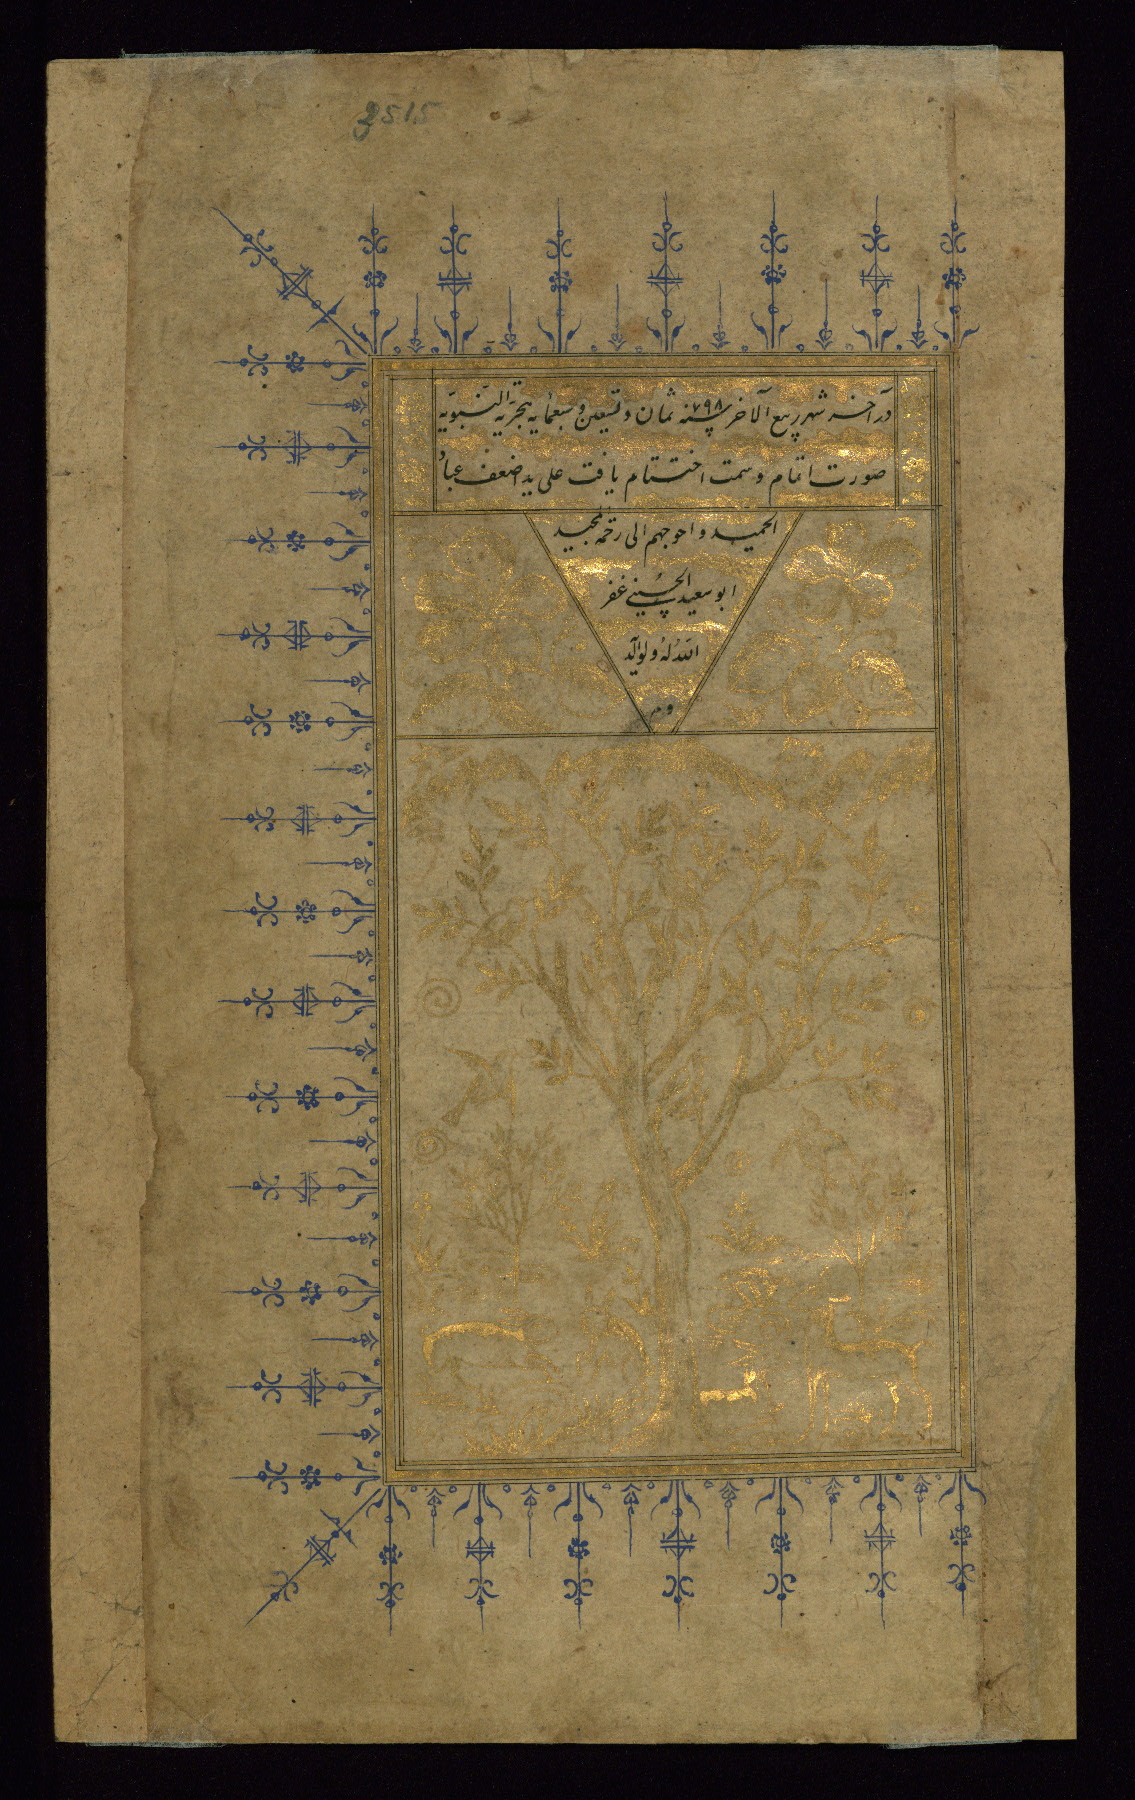 2515
در آخر شهر ربیع الآخر سنه ۷۹۸ ثمان و تسعین و سبعمایه هجریه النبویه
صورت اتمام و سمت اختتام یافت علی ید اضعف عباد
الحمید و احوجهم الی رحمة المجید
ابو سعید الحسینی غفر
الله له ولوالد